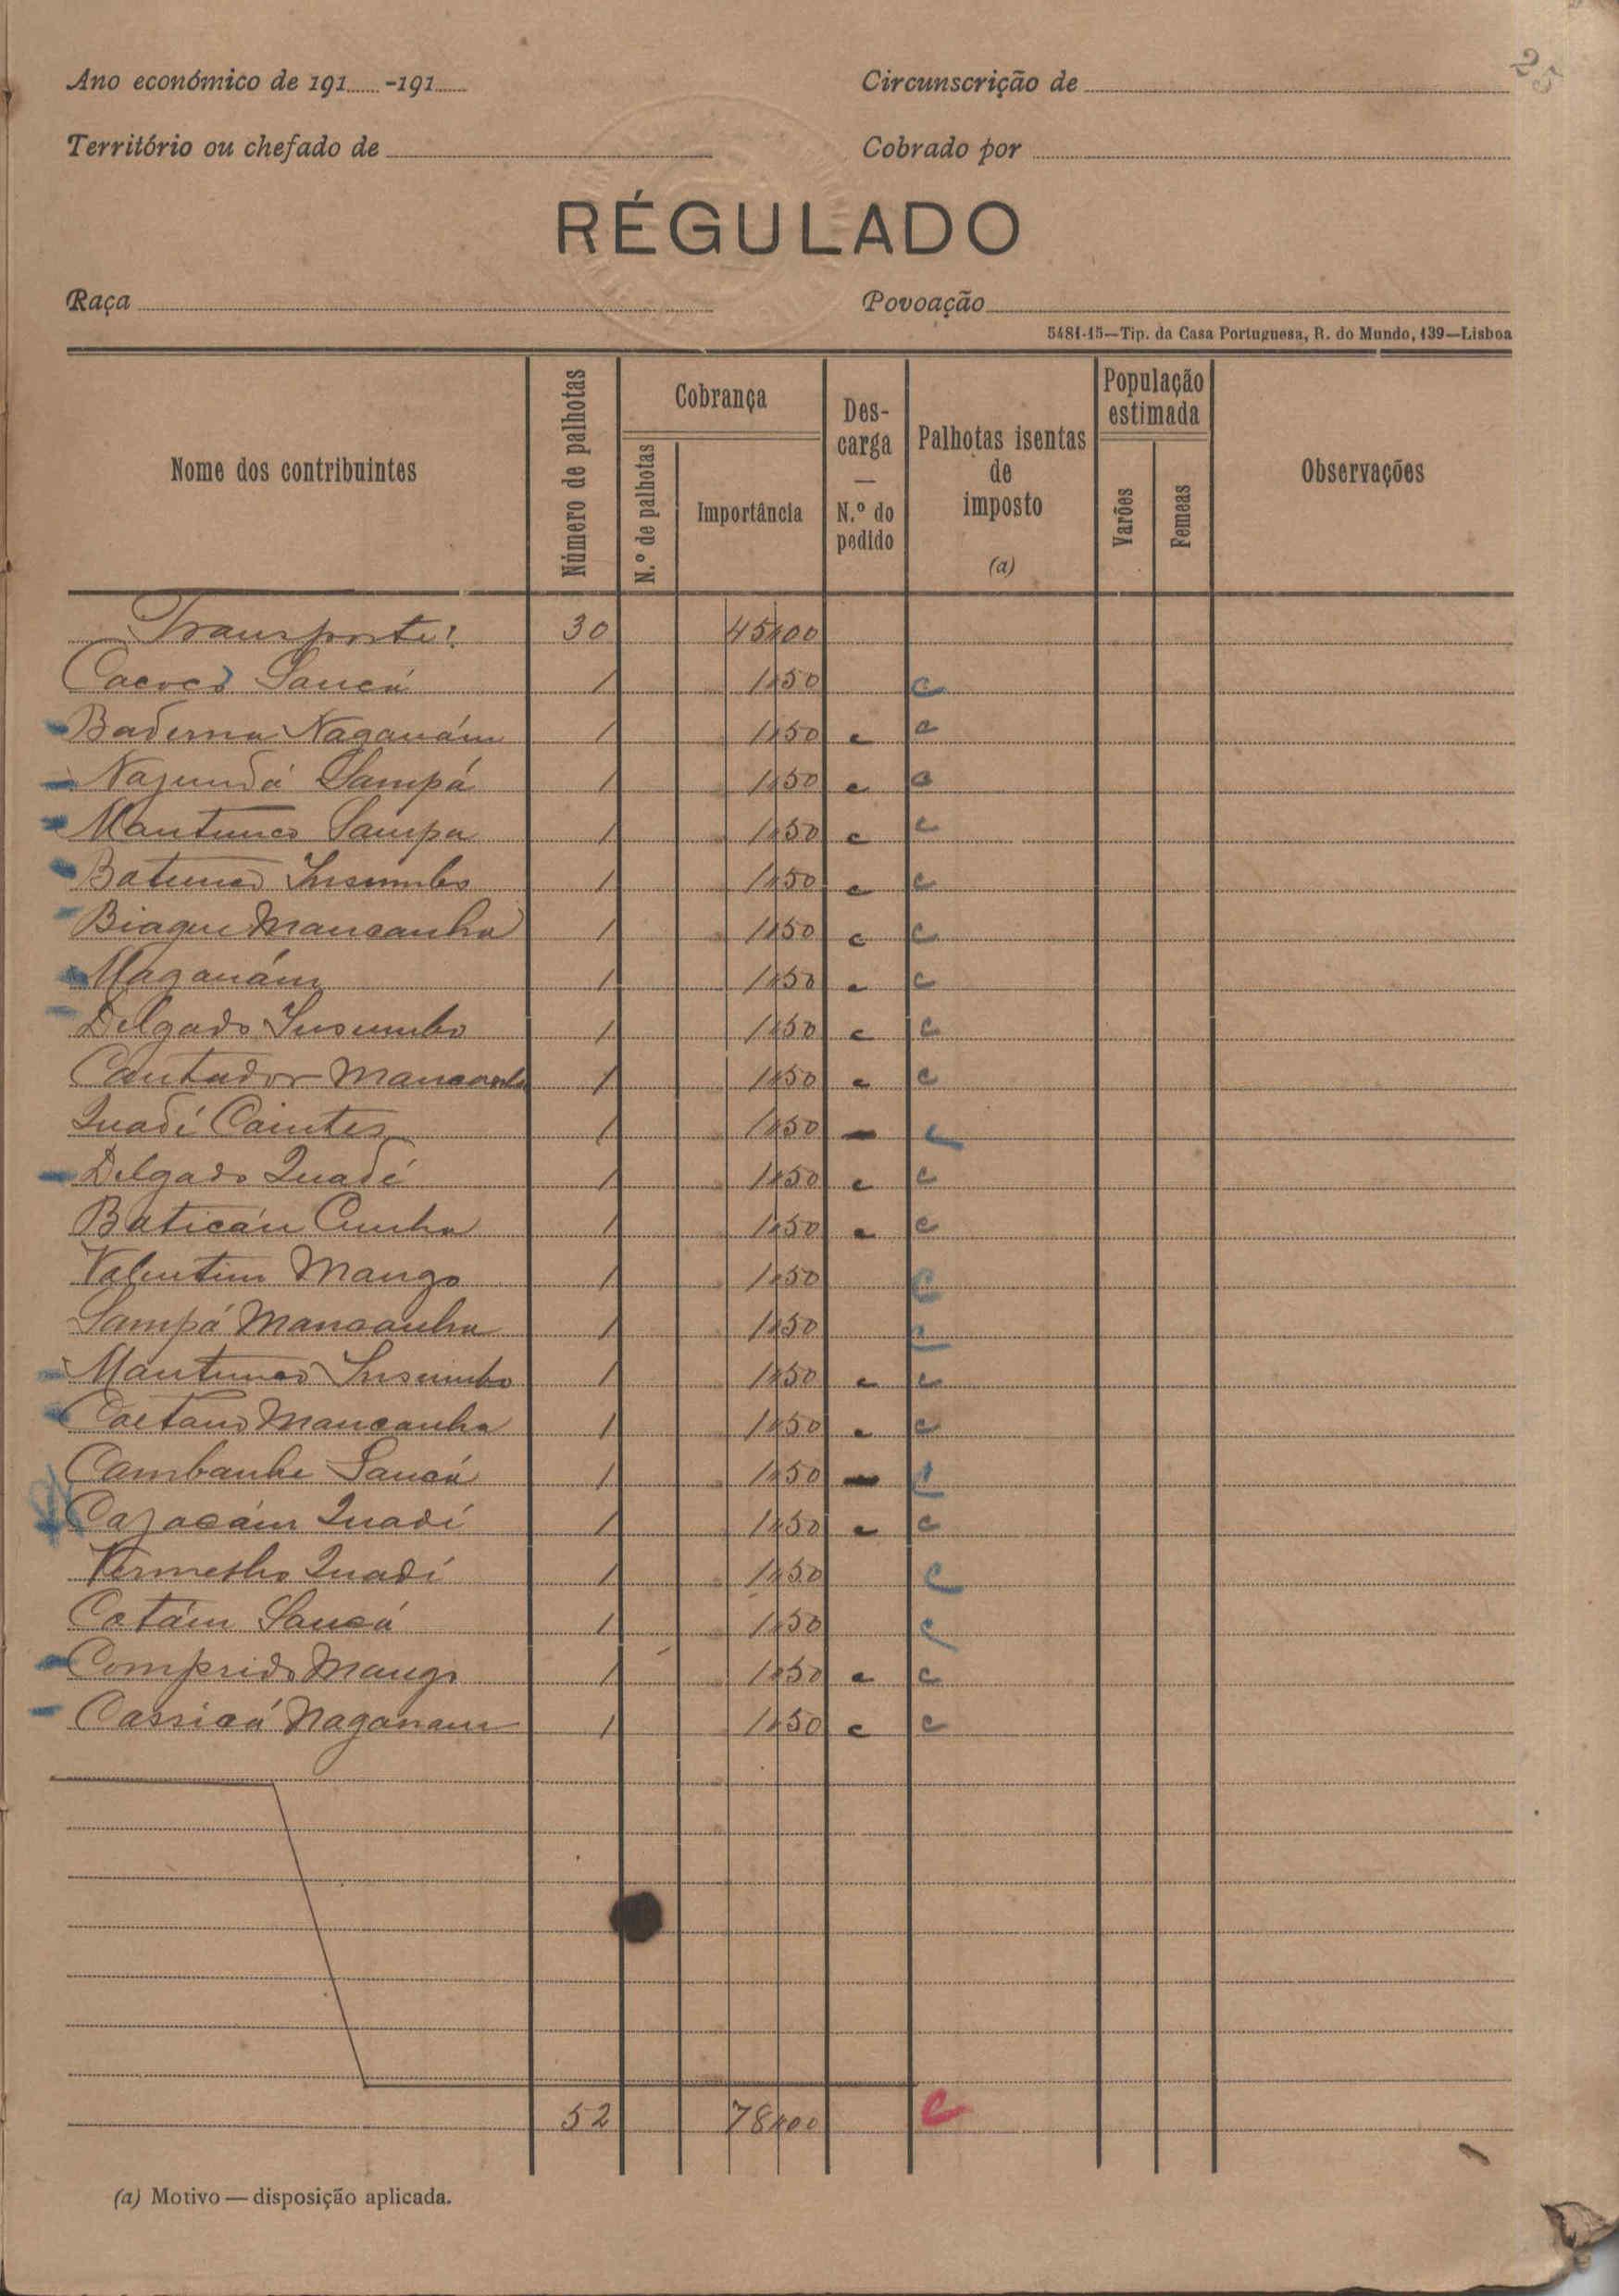 25
Ano económico de 191......-191......
Circunscrição de
Território ou chefado de
Cobrado por
RÉGULADO
Raça
Povoação
5481-15—Tip. da Casa Portuguesa, R. do Mundo, 139—Lisboa
Nome dos contribuintes
Número de palhotas
Cobrança
N.º de palhotas
Importância
Des-
carga
—
N.º do
pedido
Palhotas isentas
de
imposto
(a)
População
estimada
Varões
Femeas
Observações
Transporte: 30 45$00
Cacocó Sancá 1 1$50 c
Baderna Naganám 1 1$50 c c
Nagundá Sampá 1 1$50 c c
Mantunco Sampa 1 1$50 c c
Batunco Insumbo 1 1$50 c c
Biague Mancanha 1 1$50 c c
Naganám 1 1$50 c c
Delgado Insumbo 1 1$50 c c
Cantador Mancanha 1 1$50 c c
Quadé Caintes 1 1$50 c
Delgado Quadé 1 1$50 c c
Baticán Cunha 1 1$50 c c
Valentim Mango 1 1$50 c
Sampá Mancanha 1 1$50 c
Mantunco Insumbo 1 1$50 c c
Caetano Mancanha 1 1$50 c c
Cambanhe Sancá 1 1$50 c
Cajacám Quadí 1 1$50 c c
Vermelho Quadí 1 1$50 c
Cotám Sancá 1 1$50 c
Comprido Mango 1 1$50 c c
Cassicá Naganam 1 1$50 c c
52 78$00 c
(a) Motivo — disposição aplicada.